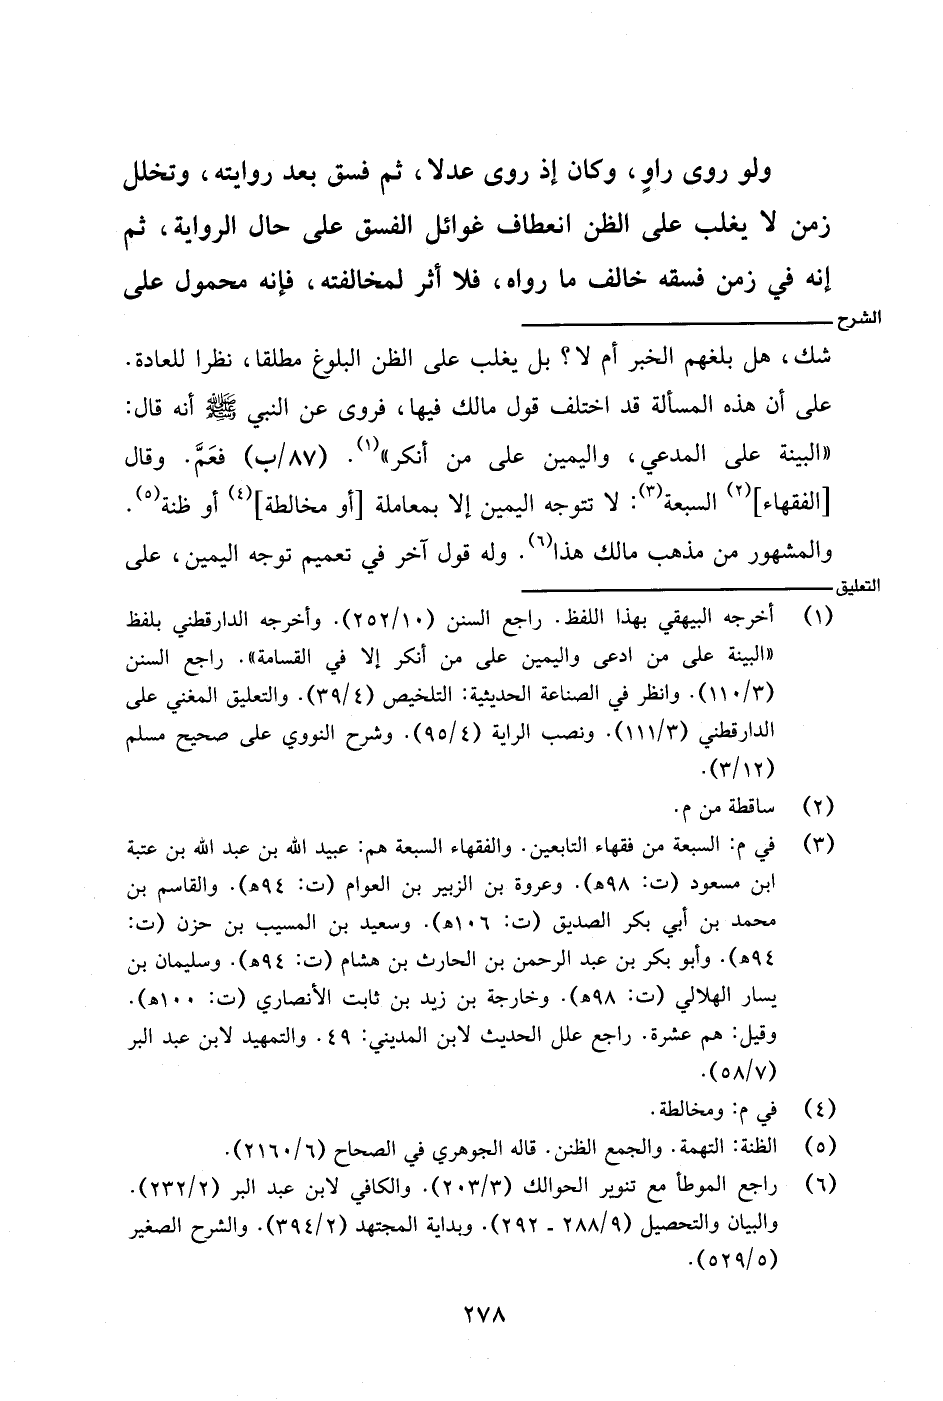 ولو روى راوٍ، وكان إذ روى عدلا، ثم فسق بعد روايته، وتخلل
زمن لا يغلب على الظن انعطاف غوائل الفسق على حال الرواية، ثم
إنه في زمن فسقه خالف ما رواه، فلا أثر لمخالفته، فإنه محمول على
الشرح
شك، هل بلغهم الخبر أم لا؟ بل يغلب على الظن البلوغ مطلقا، نظرا للعادة.
على أن هذه المسألة قد اختلف قول مالك فيها، فروى عن النبي ﷺ أنه قال:
«البينة على المدعي، واليمين على من أنكر»(١). (٨٧/ب) فعَمَّ. وقال
[الفقهاء](٢) السبعة(٣): لا تتوجه اليمين إلا بمعاملة [أو مخالطة](٤) أو ظنة(٥).
والمشهور من مذهب مالك هذا(٦). وله قول آخر في تعميم توجه اليمين، على
التعليق
(١) أخرجه البيهقي بهذا اللفظ. راجع السنن (٢٥٢/١٠). وأخرجه الدارقطني بلفظ
«البينة على من ادعى واليمين على من أنكر إلا في القسامة». راجع السنن
(١١٠/٣). وانظر في الصناعة الحديثية: التلخيص (٣٩/٤). والتعليق المغني على
الدارقطني (١١١/٣). ونصب الراية (٩٥/٤). وشرح النووي على صحيح مسلم
(٣/١٢).
(٢) ساقطة من م.
(٣) في م: السبعة من فقهاء التابعين. والفقهاء السبعة هم: عبيد الله بن عبد الله بن عتبة
ابن مسعود (ت: ٩٨هـ). وعروة بن الزبير بن العوام (ت: ٩٤هـ). والقاسم بن
محمد بن أبي بكر الصديق (ت: ١٠٦هـ). وسعيد بن المسيب بن حزن (ت:
٩٤هـ). وأبو بكر بن عبد الرحمن بن الحارث بن هشام (ت: ٩٤هـ). وسليمان بن
يسار الهلالي (ت: ٩٨هـ). وخارجة بن زيد بن ثابت الأنصاري (ت: ١٠٠هـ).
وقيل: هم عشرة. راجع علل الحديث لابن المديني: ٤٩. والتمهيد لابن عبد البر
(٥٨/٧).
(٤) في م: ومخالطة.
(٥) الظنة: التهمة. والجمع الظنن. قاله الجوهري في الصحاح (٢١٦٠/٦).
(٦) راجع الموطأ مع تنوير الحوالك (٢٠٣/٣). والكافي لابن عبد البر (٢٣٢/٢).
والبيان والتحصيل (٢٨٨/٩ ـ ٢٩٢). وبداية المجتهد (٣٩٤/٢). والشرح الصغير
(٥٢٩/٥).
٢٧٨